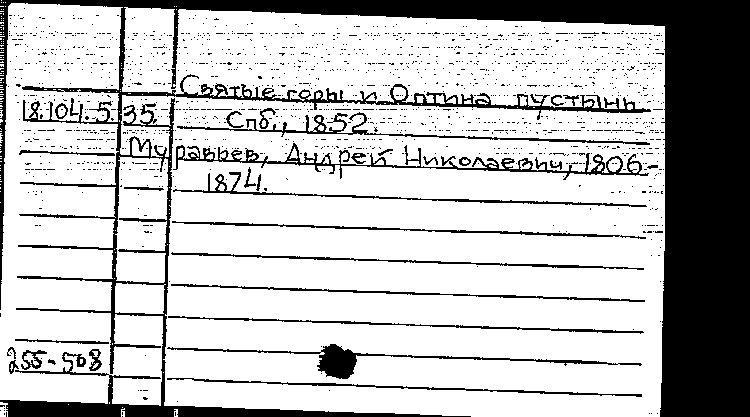 Святые горы и Оптина пустынь
18.104.5.35. Спб., 1852.
Муравьев, Андрей Николаевич, 1806-
1874.
255-508